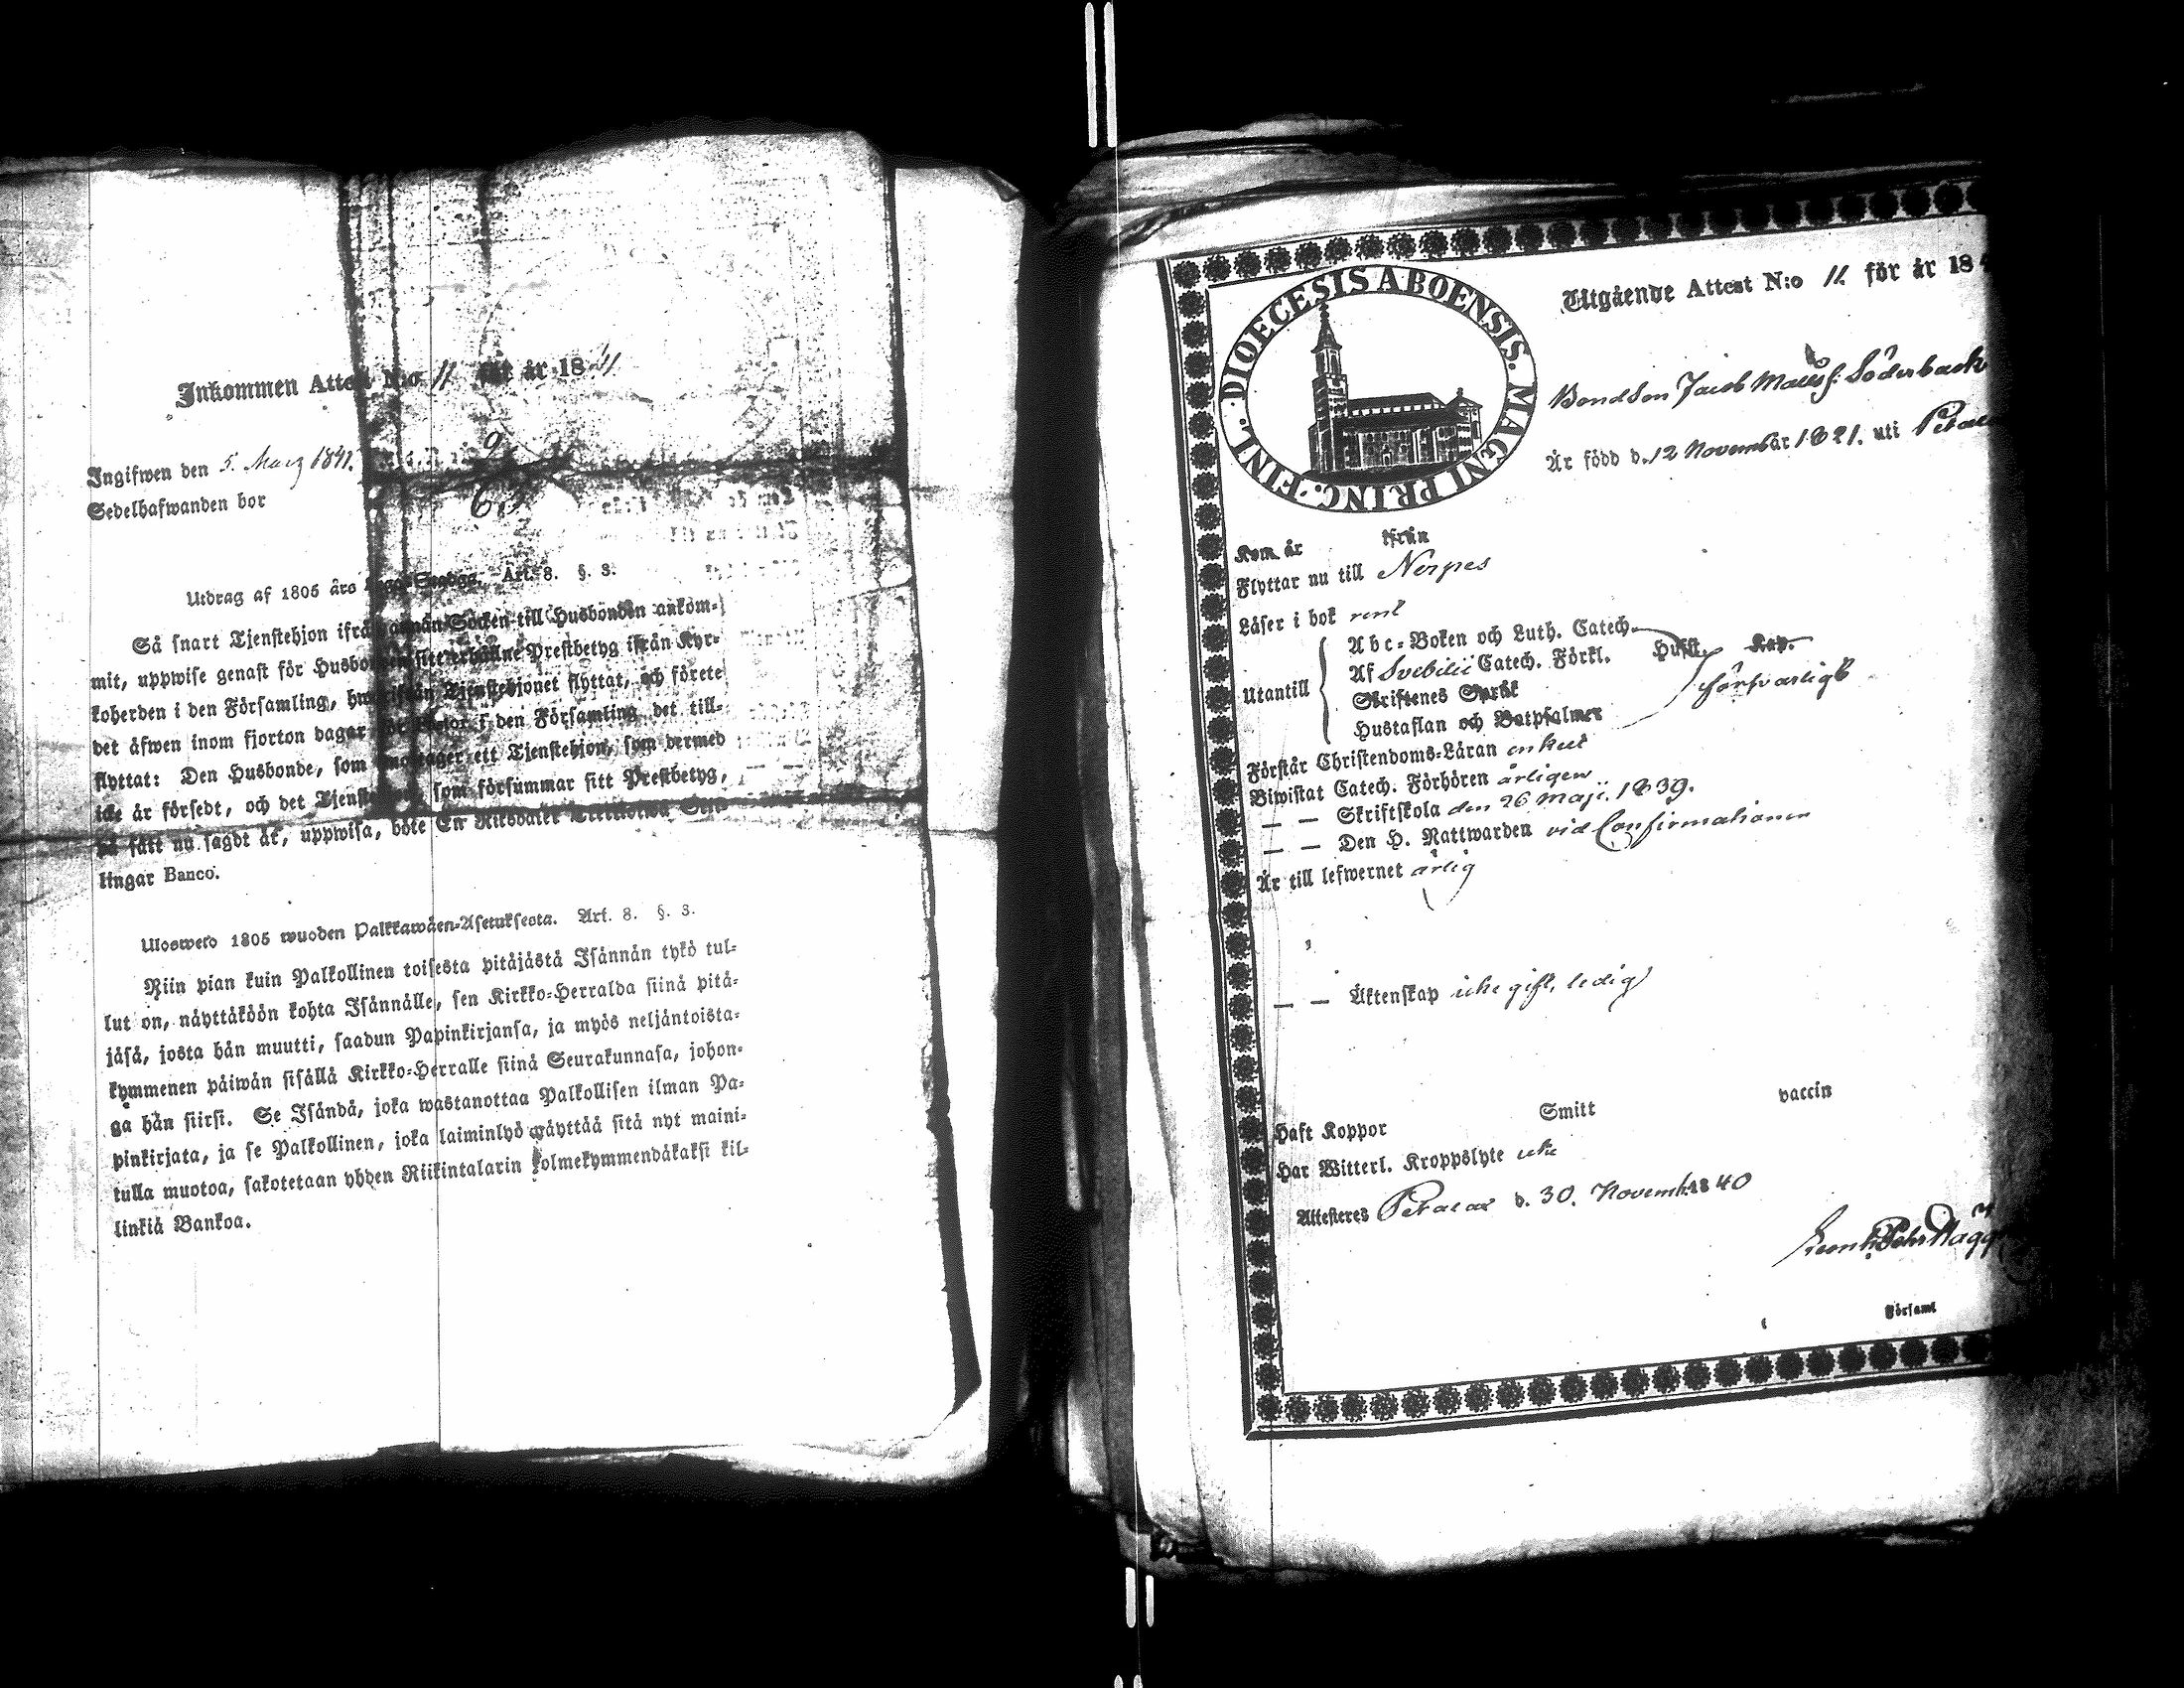 Inkommen Attest N:o 11 för år 1841
Ingifwen den 5. Marz 1841.
Sedelhafwanden bor
Utdrag af 1805 års Lego-Stadga. Art. 8. §. 3.
Så snart Tjenstehjon ifrån annan Socken till Husbonden ankom-
mit, uppwise genast för Husbonden sitt erhållne Prestbetyg ifrån Kyr-
koherden i den Församling, hwarifrån Tjenstehjonet flyttat, och förete
det äfwen inom fjorton dagar för Pastor i den Församling det till-
flyttat: Den Husbonde, som emottager ett Tjenstehjon, som dermed
icke är försedt, och det Tjenstehjon, som försummar sitt Prestbetyg,
på sätt nu sagdt är, uppwisa, böte En Riksdaler Trettiotwå Skil-
lingar Banco.
Ulosweto 1805 wuoden Palkkawäen-Asetuksesta. Art. 8. §. 3.
Niin pian kuin Palkollinen toisesta pitäjästä Isännän tykö tul-
lut on, näyttäköön kohta Isännälle, sen Kirkko-Herralda siinä pitä-
jäsä, josta hän muutti, saadun Papinkirjansa, ja myös neljäntoista-
kymmenen päiwän sisällä Kirkko-Herralle siinä Seurakunnasa, johon-
ga hän siirsi. Se Isändä, joka wastanottaa Palkollisen ilman Pa-
pinkirjata, ja se Palkollinen, joka laiminlyö näyttää sitä nyt maini-
tulla muotoa, sakotetaan yhden Riikintalarin kolmekymmendäkaksi kil-
linkiä Bankoa.
DIOECESIS ABOENSIS. MAGNI PRINC. FINL.
Utgående Attest N:o 11. för år 18
Bondson Jacob Matts s: Söderback
Är född d. 12 Novemb år 1821. uti
Kom år ifrån
Flyttar nu till Nerpes
Läser i bok rent
Abc-Boken och Luth. Catech.
Utantill Af Svebilii Catech. Förkl. Husfl. Kap.
Skriftenes Språk försvarligt
Hustaflan och Botpsalmer
Förstår Christendoms-Läran enkelt
Biwistat Catech. Förhören årligen
— — Skriftskola den 26 Maji. 1839.
— — Den H. Nattwarden vid Confirmationen
Är till lefwernet ärlig
— — Äktenskap icke gift, ledig
Haft Koppor Smitt vaccin
Har Witterl. Kroppslyte icke
Attesteres Petalax d. 30. Novemb. 1840
Församl